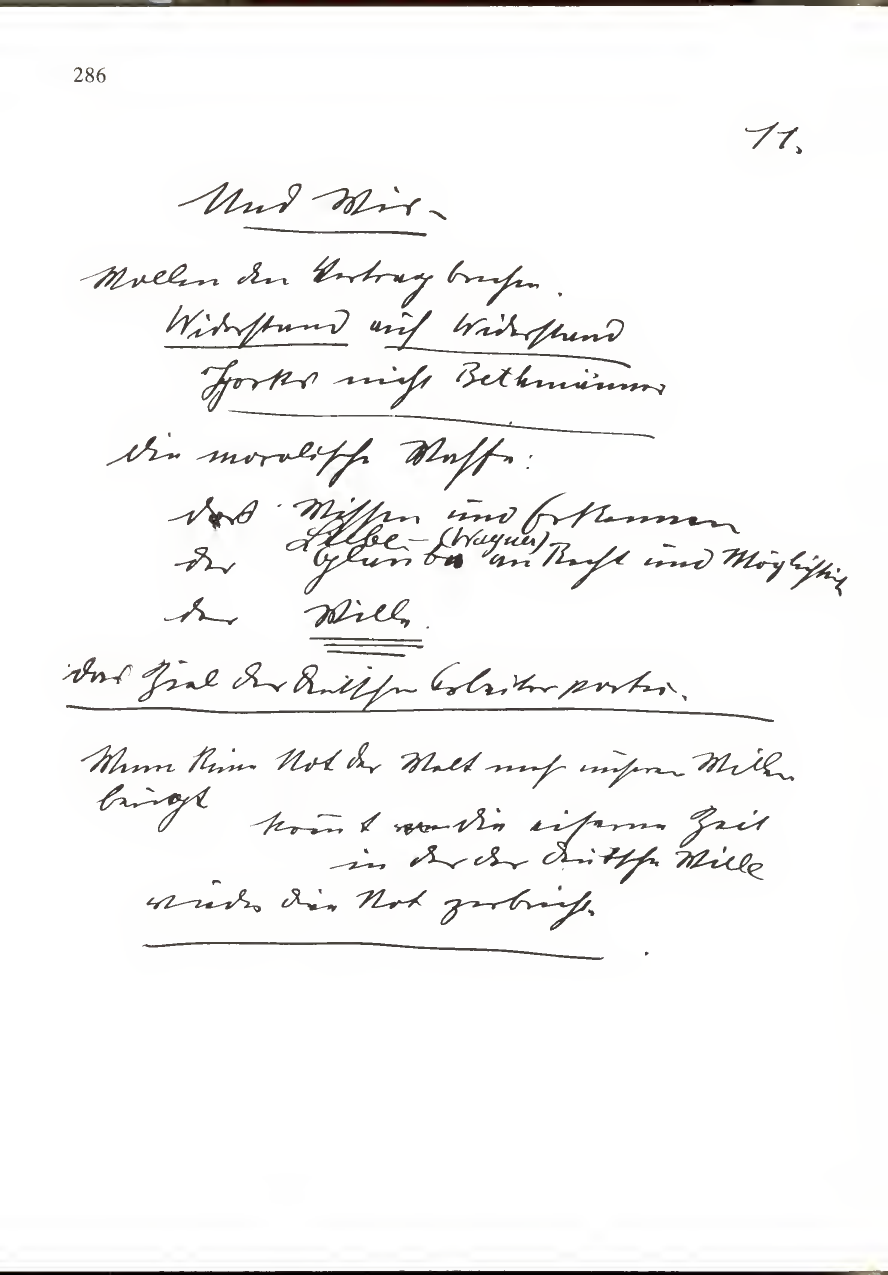 286
11.
Und Wir –
Wollen den Vertrag brechen.
Widerstand auf Widerstand
Yorks nicht Bethmänner
die moralische Waffe:
das Wissen und Erkennen
Liebe – (Wagner)
der Glaube an Recht und Möglichkeit
der Wille.
das Ziel der deutschen Arbeiterpartei.
Wenn keine Not der Welt mehr unseren Willen
beugt
kom̄t die eiserne Zeit
in der der deutsche Wille
wieder die Not zerbricht.